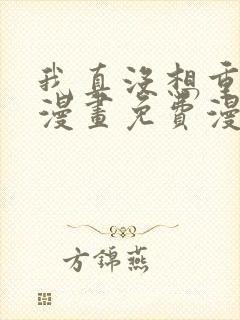 我真没想重
漫畫免費漫
方錦燕